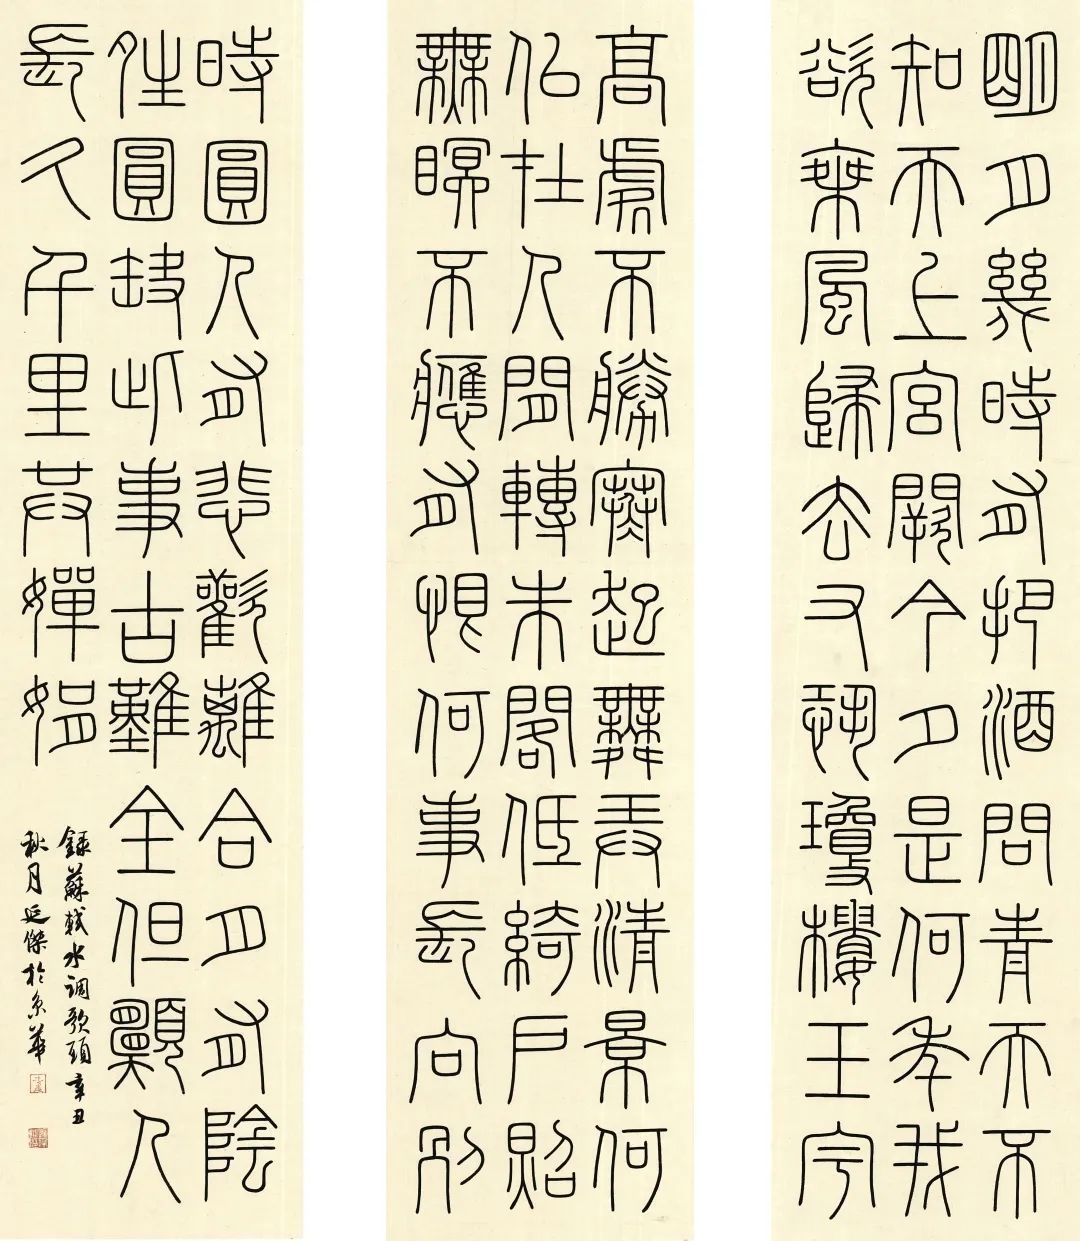 明月幾時有把酒問青天不
知天上宮闕今夕是何年我
欲乘風歸去又恐瓊樓玉宇
高處不勝寒起舞弄清景何
似在人間轉朱閣低綺戶照
無瞑不應有恨何事長向別
時圓人有悲歡離合月有陰
晴圓缺此事古難全但願人
長久千里共嬋娟
録蘇軾水調歌頭辛丑
秋月延傑於京華